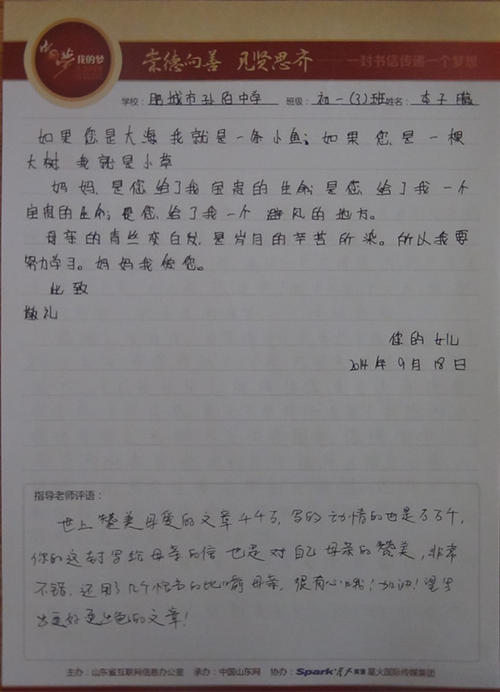 中国梦 我的梦
崇德向善 见贤思齐 ——一封书信传递一个梦想
学校:肥城市孙伯中学 班级:初一(3)班姓名:李子
如果您是大海我就是一条小鱼;如果您是一棵
大树 我就是小草
妈妈,是您给了我宝贵的生命;是您给了我一个
宝贵的生命;是您给了我一个避风的地方。
母亲的青丝变白发,是岁月的辛苦所染。所以我要
努力学习。妈妈我爱您。
此致
敬礼
你的女儿
2014年9月18日
指导老师评语:
世上赞美母爱的文章千千万,写的动情的也是万万千,
你的这封写给母亲的信也是对自己母亲的赞美,非常
不错,还用了几个恰当的比喻 母亲,很有心哦!加油!望写
出更好更出色的文章!
主办:山东省互联网信息办公室 承办:中国山东网 协办:Spark星火英语 星火国际传媒集团